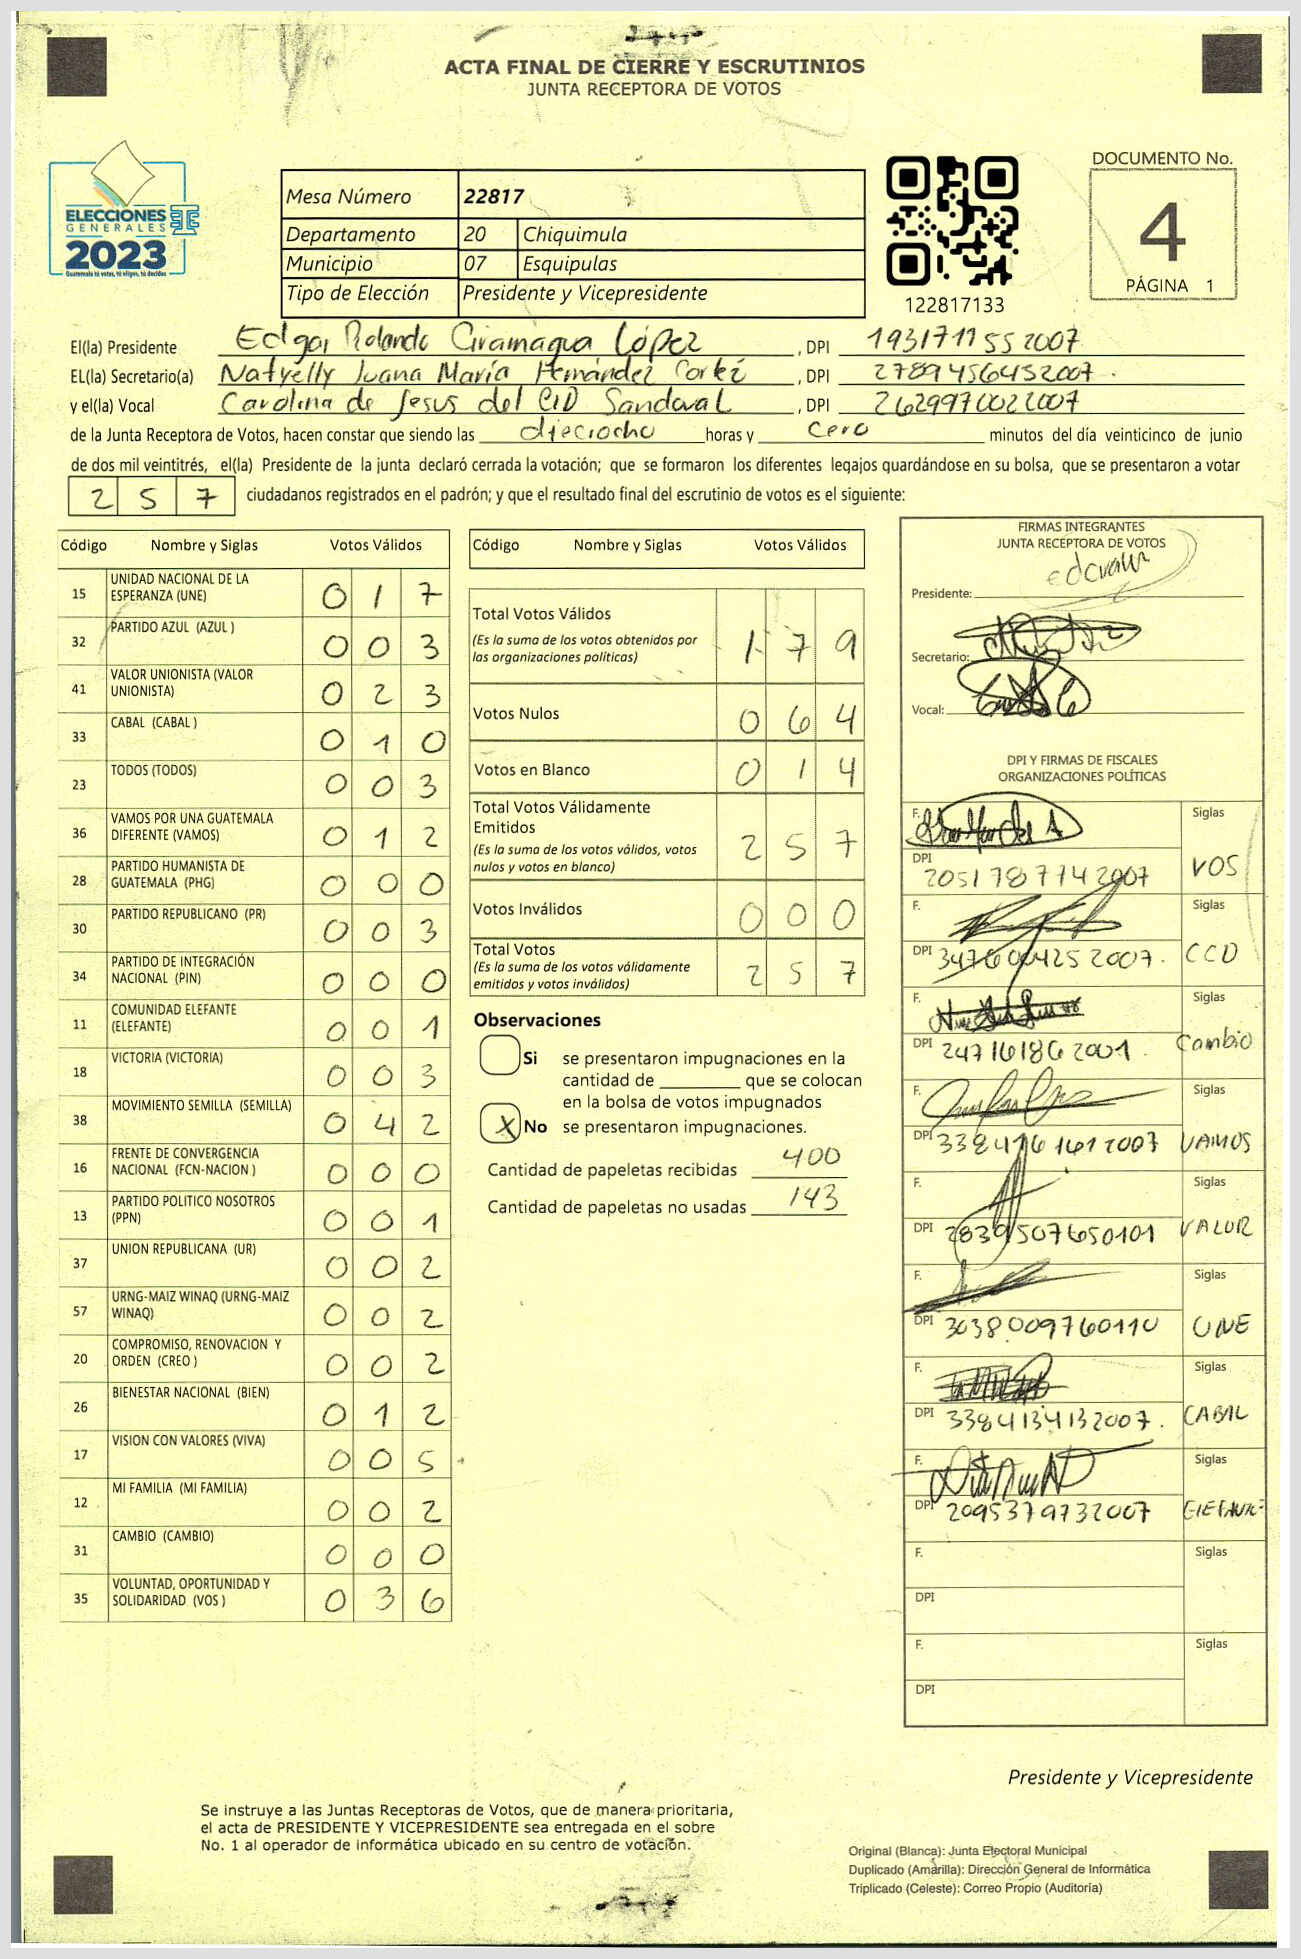 ACTA FINAL DE CIERRE Y ESCRUTINIOS
JUNTA RECEPTORA DE VOTOS
ELECCIONES
GENERALES
2023
Guatemala tú votas, tú eliges, tú decides
Mesa Número 22817
Departamento 20 Chiquimula
Municipio 07 Esquipulas
Tipo de Elección Presidente y Vicepresidente
122817133
DOCUMENTO No.
4
PÁGINA 1
El(la) Presidente Edgar Rolando Ciramagua López, DPI 1931711552007
EL(la) Secretario(a) Natyelly Juana María Hernández Cortéz, DPI 2789456452007.
y el(la) Vocal Carolina de Jesus del CID Sandoval, DPI 2629970022007
de la Junta Receptora de Votos, hacen constar que siendo las dieciocho horas y cero minutos del día veinticinco de junio
de dos mil veintitrés, el(la) Presidente de la junta declaró cerrada la votación; que se formaron los diferentes legajos guardándose en su bolsa, que se presentaron a votar
2 5 7 ciudadanos registrados en el padrón; y que el resultado final del escrutinio de votos es el siguiente:
Código Nombre y Siglas Votos Válidos
15 UNIDAD NACIONAL DE LA ESPERANZA (UNE) 0 1 7
32 PARTIDO AZUL (AZUL ) 0 0 3
41 VALOR UNIONISTA (VALOR UNIONISTA) 0 2 3
33 CABAL (CABAL ) 0 1 0
23 TODOS (TODOS) 0 0 3
36 VAMOS POR UNA GUATEMALA DIFERENTE (VAMOS) 0 1 2
28 PARTIDO HUMANISTA DE GUATEMALA (PHG) 0 0 0
30 PARTIDO REPUBLICANO (PR) 0 0 3
34 PARTIDO DE INTEGRACIÓN NACIONAL (PIN) 0 0 0
11 COMUNIDAD ELEFANTE (ELEFANTE) 0 0 1
18 VICTORIA (VICTORIA) 0 0 3
38 MOVIMIENTO SEMILLA (SEMILLA) 0 4 2
16 FRENTE DE CONVERGENCIA NACIONAL (FCN-NACION ) 0 0 0
13 PARTIDO POLITICO NOSOTROS (PPN) 0 0 1
37 UNION REPUBLICANA (UR) 0 0 2
57 URNG-MAIZ WINAQ (URNG-MAIZ WINAQ) 0 0 2
20 COMPROMISO, RENOVACION Y ORDEN (CREO ) 0 0 2
26 BIENESTAR NACIONAL (BIEN) 0 1 2
17 VISION CON VALORES (VIVA) 0 0 5
12 MI FAMILIA (MI FAMILIA) 0 0 2
31 CAMBIO (CAMBIO) 0 0 0
35 VOLUNTAD, OPORTUNIDAD Y SOLIDARIDAD (VOS ) 0 3 6
Código Nombre y Siglas Votos Válidos
Total Votos Válidos 1 7 9
(Es la suma de los votos obtenidos por
las organizaciones políticas)
Votos Nulos 0 6 4
Votos en Blanco 0 1 4
Total Votos Válidamente
Emitidos 2 5 7
(Es la suma de los votos válidos, votos
nulos y votos en blanco)
Votos Inválidos 0 0 0
Total Votos 2 5 7
(Es la suma de los votos válidamente
emitidos y votos inválidos)
Observaciones
Si se presentaron impugnaciones en la
cantidad de ________ que se colocan
en la bolsa de votos impugnados
X No se presentaron impugnaciones.
Cantidad de papeletas recibidas 400
Cantidad de papeletas no usadas 143
FIRMAS INTEGRANTES
JUNTA RECEPTORA DE VOTOS
Presidente:
Secretario:
Vocal:
DPI Y FIRMAS DE FISCALES
ORGANIZACIONES POLÍTICAS
F. Siglas
DPI 2051787742007 VOS
F. Siglas
DPI 3476004252007. CCD
F. Siglas
DPI 247161862001. Cambio
F. Siglas
DPI VAMOS
F. Siglas
DPI 2839507650101 VALOR
F. Siglas
DPI 3038009760110 UNE
F. Siglas
DPI 3384134132007. CABAL
F. Siglas
DPI 2095379732007 ElEFANTE
F. Siglas
DPI
F. Siglas
DPI
Presidente y Vicepresidente
Se instruye a las Juntas Receptoras de Votos, que de manera prioritaria,
el acta de PRESIDENTE Y VICEPRESIDENTE sea entregada en el sobre
No. 1 al operador de informática ubicado en su centro de votación.
Original (Blanca): Junta Electoral Municipal
Duplicado (Amarilla): Dirección General de Informática
Triplicado (Celeste): Correo Propio (Auditoría)